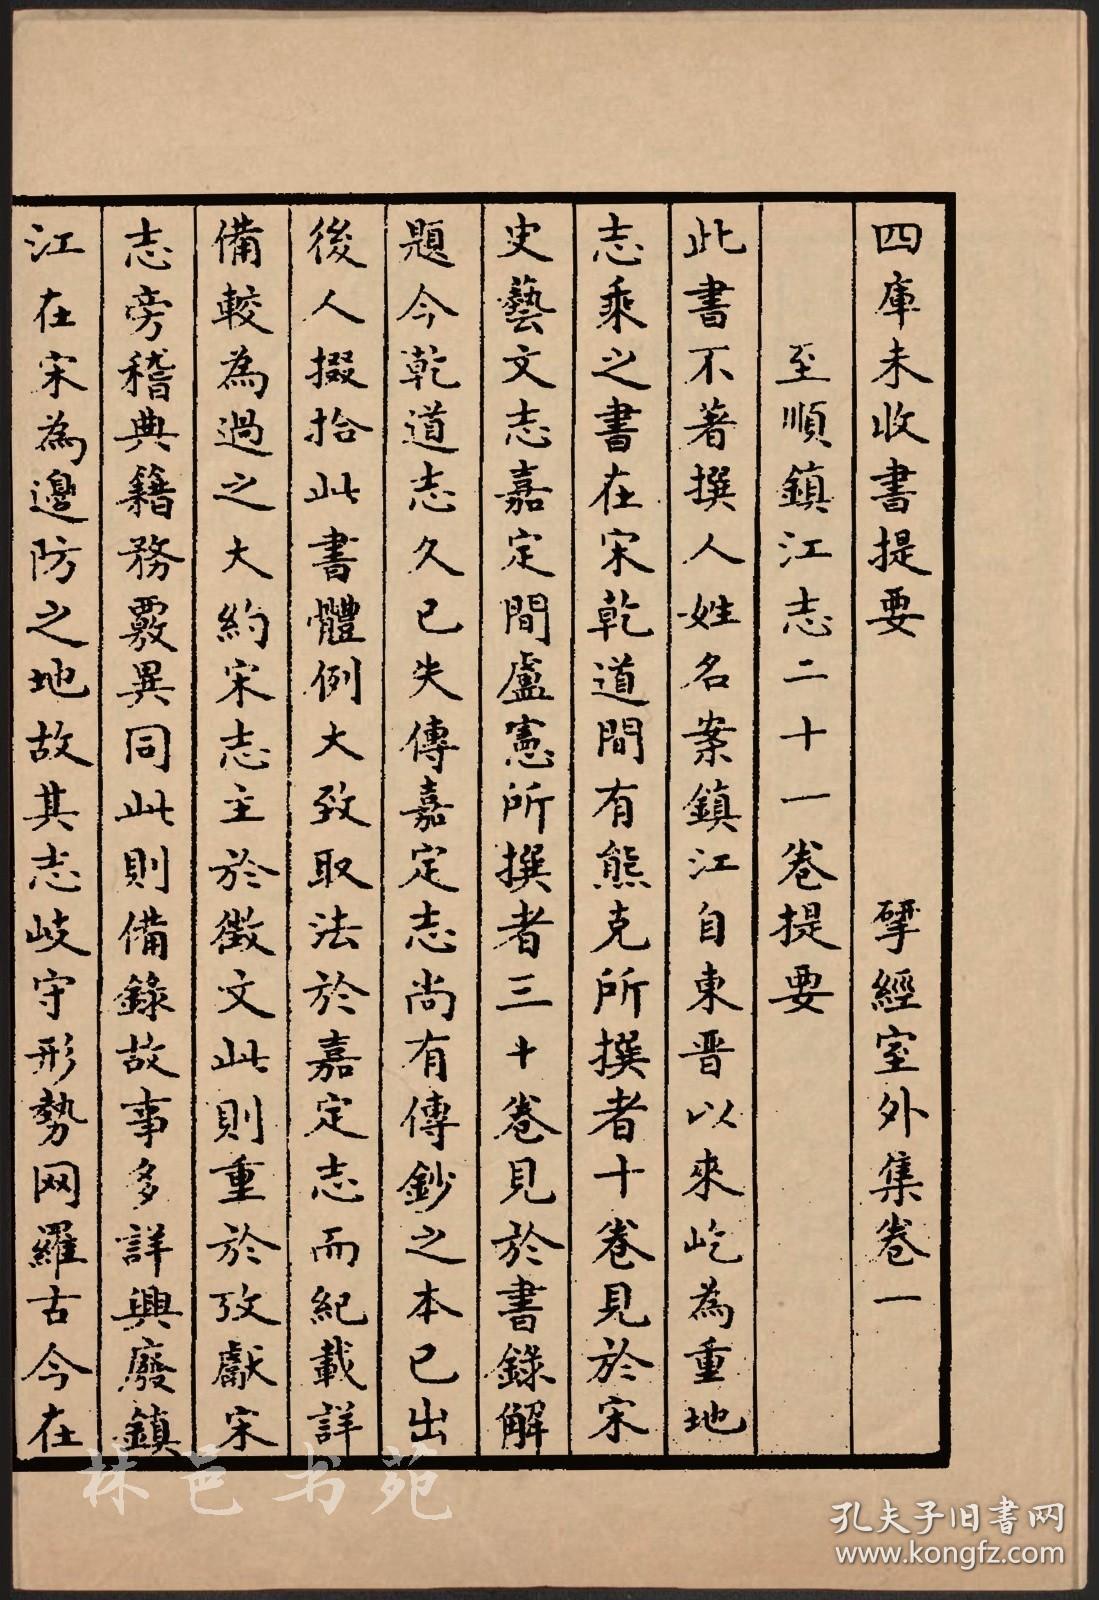 四庫未收書提要　揅經室外集卷一
至順鎮江志二十一卷提要
此書不著撰人姓名案鎮江自東晋以來屹為重地
志乘之書在宋乾道間有熊克所撰者十卷見於宋
史藝文志嘉定間盧憲所撰者三十卷見於書錄解
題今乾道志久已失傳嘉定志尚有傳鈔之本已出
後人掇拾此書體例大致取法於嘉定志而紀載詳
備較為過之大約宋志主於徵文此則重於攷獻宋
志旁稽典籍務覈異同此則備錄故事多詳興廢鎮
江在宋為邊防之地故其志岐守形勢网羅古今在
秣邑书苑
孔夫子旧书网
www.kongfz.com